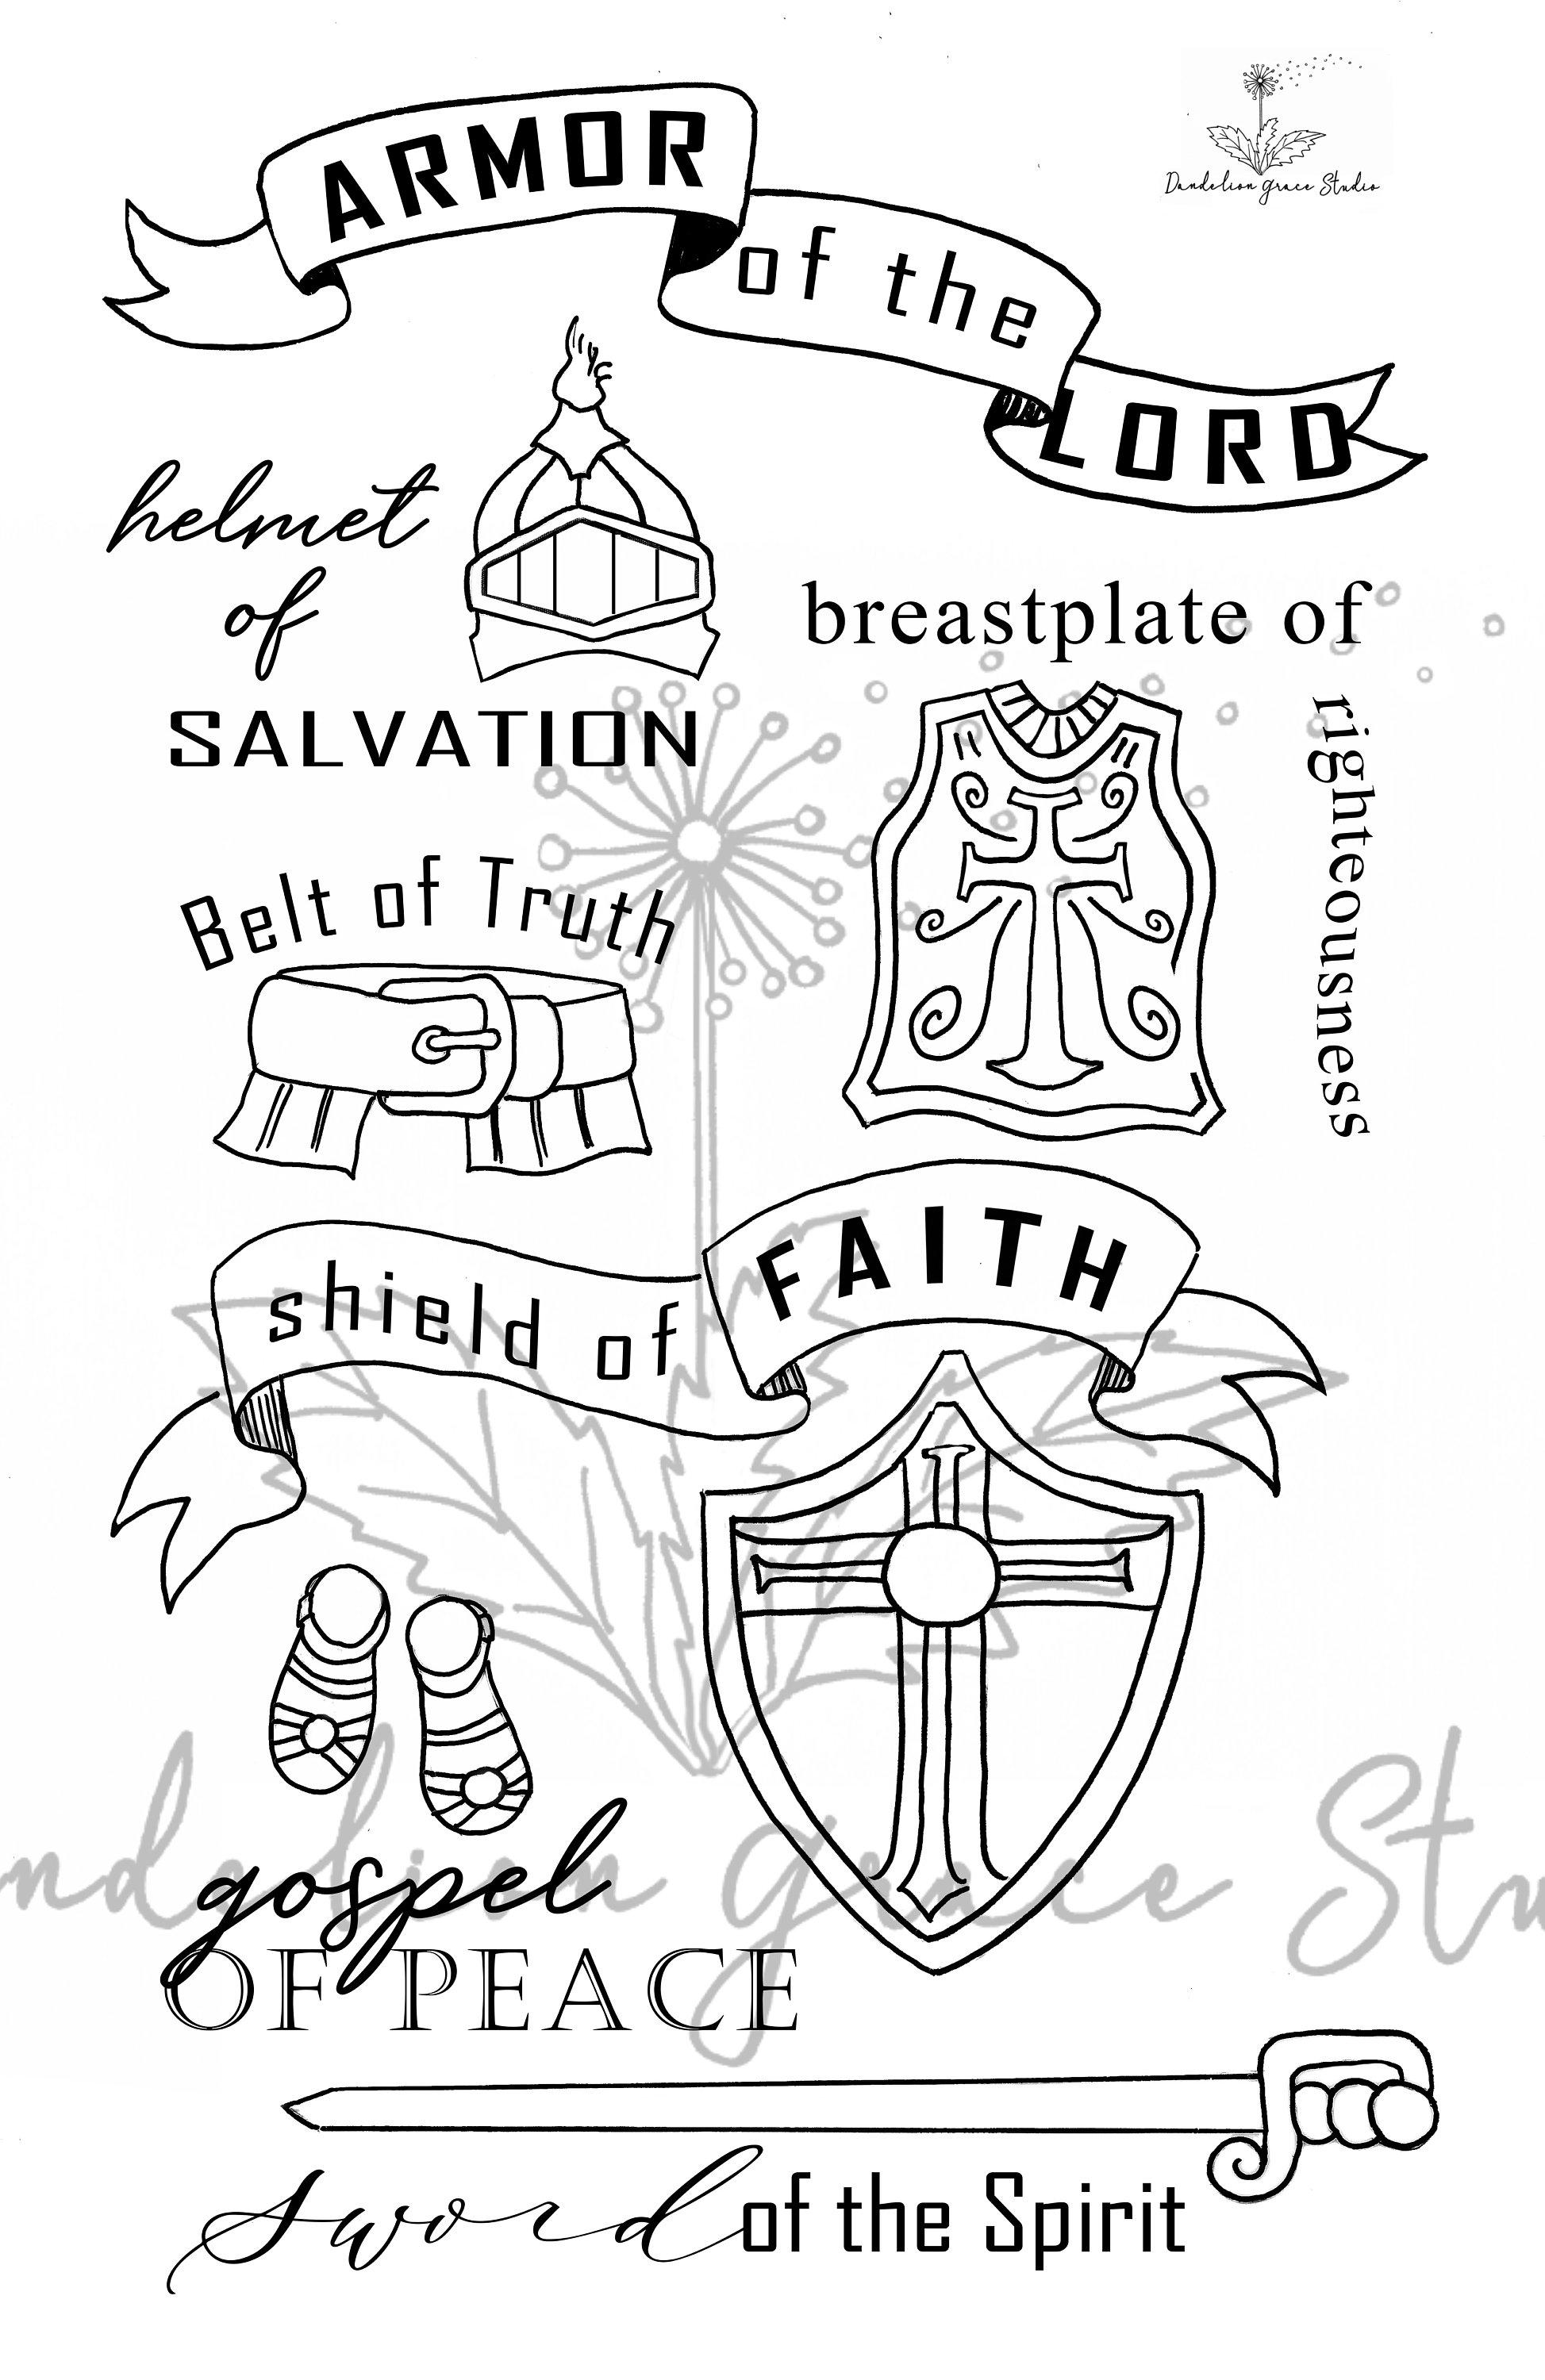 Dandelion Grace Studio
ARMOR
of the
LORD
helmet
of
SALVATION
breastplate of
righteousness
Belt of Truth
shield of
FAITH
gospel
OF PEACE
ndelion Grace Stu
sword of the Spirit